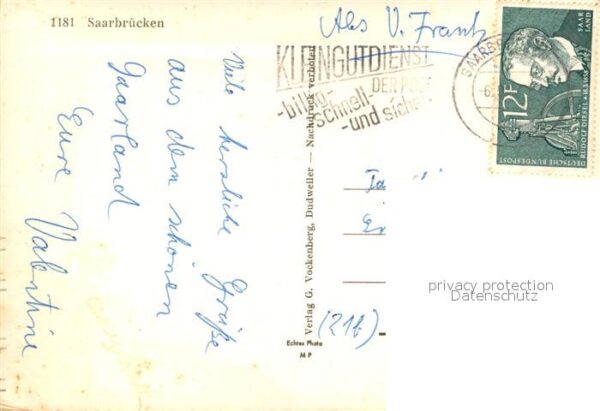 1181 Saarbrücken
Abs V. Frantz
KLEINGUTDIENST
DER POST
-billig-
schnell-
-und sicher
SAARBR
12 F
SAAR
LAND
RUDOLF DIESEL 18.3.1858
DEUTSCHE BUNDESPOST
Viele herzliche Grüße
aus dem schönen
Saarland
Eure Valentine
Verlag G. Vockenberg, Dudweiler — Nachdruck verboten
(21b)
Echtes Photo
M P
privacy protection
Datenschutz